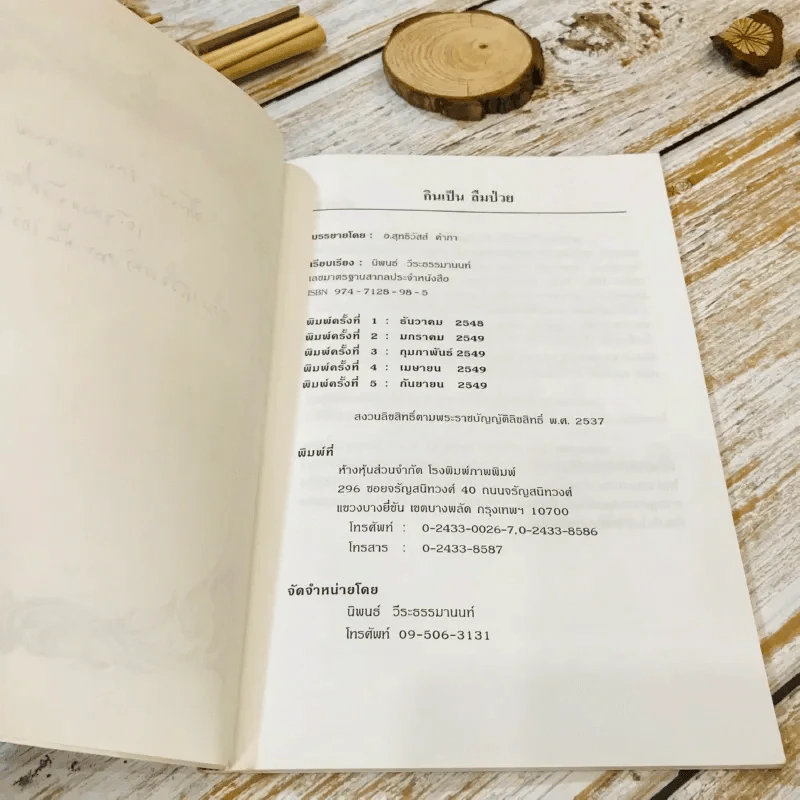 กินเป็น ลืมป่วย
บรรยายโดย : อ.สุทธิวัสส์ คำภา
เรียบเรียง : นิพนธ์ วีระธรรมานนท์
เลขมาตรฐานสากลประจำหนังสือ
ISBN 974-7128-98-5
พิมพ์ครั้งที่ 1 : ธันวาคม 2548
พิมพ์ครั้งที่ 2 : มกราคม 2549
พิมพ์ครั้งที่ 3 : กุมภาพันธ์ 2549
พิมพ์ครั้งที่ 4 : เมษายน 2549
พิมพ์ครั้งที่ 5 : กันยายน 2549
สงวนลิขสิทธิ์ตามพระราชบัญญัติลิขสิทธิ์ พ.ศ. 2537
พิมพ์ที่
ห้างหุ้นส่วนจำกัด โรงพิมพ์ภาพพิมพ์
296 ซอยจรัญสนิทวงศ์ 40 ถนนจรัญสนิทวงศ์
แขวงบางยี่ขัน เขตบางพลัด กรุงเทพฯ 10700
โทรศัพท์ : 0-2433-0026-7,0-2433-8586
โทรสาร : 0-2433-8587
จัดจำหน่ายโดย
นิพนธ์ วีระธรรมานนท์
โทรศัพท์ 09-506-3131